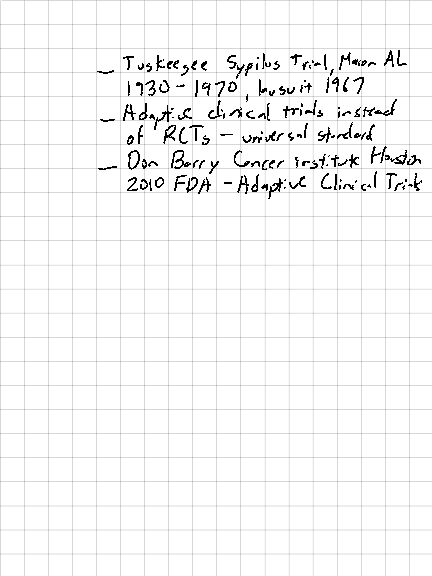 — Tuskeegee Sypilus Trial, Macon AL
1930 - 1970, lawsuit 1967
— Adaptive clinical trials instead
of RCTs - universal standard
— Don Barry Cancer institute Houston
2010 FDA - Adaptive Clinical Trials